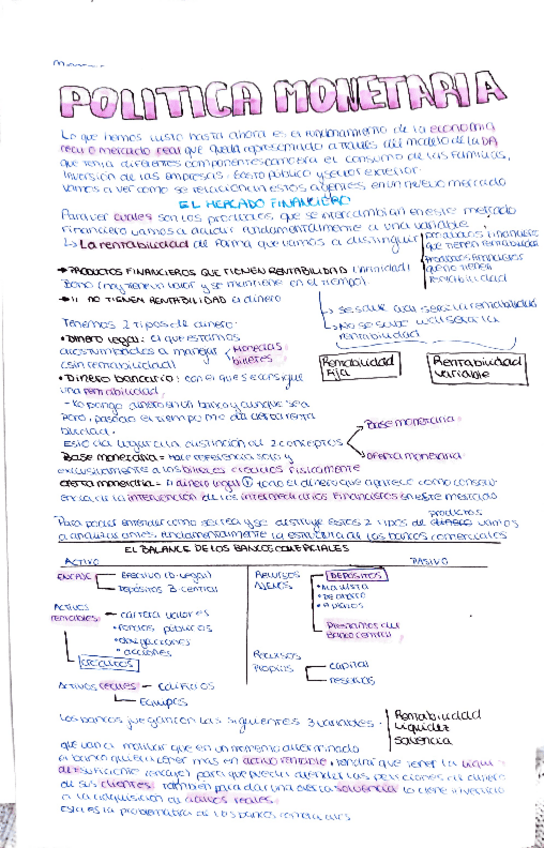 POLITICA MONETARIA
Lo que hemos visto hasta ahora es el funcionamiento de la economía
real o mercado real que queda representado a través del modelo de la DA
que tenía diferentes componentes como era el consumo de las familias,
inversión de las empresas, gasto público y sector exterior.
Vamos a ver como se relacionan estos agentes en un nuevo mercado
EL MERCADO FINANCIERO
Para ver cuales son los productos, que se intercambian en este mercado
financiero vamos a acudir fundamentalmente a una variable
↳ La rentabilidad de forma que vamos a distinguir
productos financieros
que tienen rentabilidad
productos financieros
que no tienen
rentabilidad
→ PRODUCTOS FINANCIEROS QUE TIENEN RENTABILIDAD
Bono (hay tienen valor y se mantiene en el tiempo).
→ " NO TIENEN RENTABILIDAD dinero
→ se sabe cual sera la rentabilidad
→ No se sabe cual sera la
rentabilidad
Rentabilidad Fija
Rentabilidad variable
Tenemos 2 tipos de dinero:
• Dinero legal: el que estamos
acostumbrados a manejar
(sin rentabilidad)
Monedas
billetes
• Dinero bancario: con el que se consigue
una rentabilidad.
- Yo pongo dinero en un banco y aunque sea
poco, pasado el tiempo me da cierta renta
bilidad.
Esto da lugar a la distinción de 2 conceptos
Base monetaria
oferta monetaria
Base monetaria = hace referencia solo y
exclusivamente a los billetes creados físicamente
oferta monetaria = El dinero legal + todo el dinero que aparece como consecu-
encia de la intervención de los intermediarios financieros en este mercado
Para poder entender como se crea y se distribuye estos 2 tipos de dinero productos vamos
a analizar antes, fundamentalmente la estructura de los bancos comerciales
EL BALANCE DE LOS BANCOS COMERCIALES
ACTIVO
PASIVO
ENCAJE
Efectivo (D. Legal)
Depósitos B. central
ACTIVOS
rentables
- cartera valores
• fondos públicos
• obligaciones
• acciones
CREDITOS
ACTIVOS reales - edificios
Equipos
RECURSOS
AJENOS
DEPÓSITOS
• A la vista
• De ahorro
• A plazos
Prestamos del
Banco central
RECURSOS
Propios
capital
reservas
Los bancos juegan con las siguientes 3 variables
Rentabilidad
Liquidez
Solvencia
que van a motivar que en un momento determinado
el banco quiera tener más en activo rentable, tendrá que tener la liqui-
dez suficiente (encaje) para que pueda atender las peticiones de dinero
de sus clientes. También para dar una cierta solvencia lo tiene invertido
a la adquisición de activos reales.
Esta es la problemática de los bancos comerciales